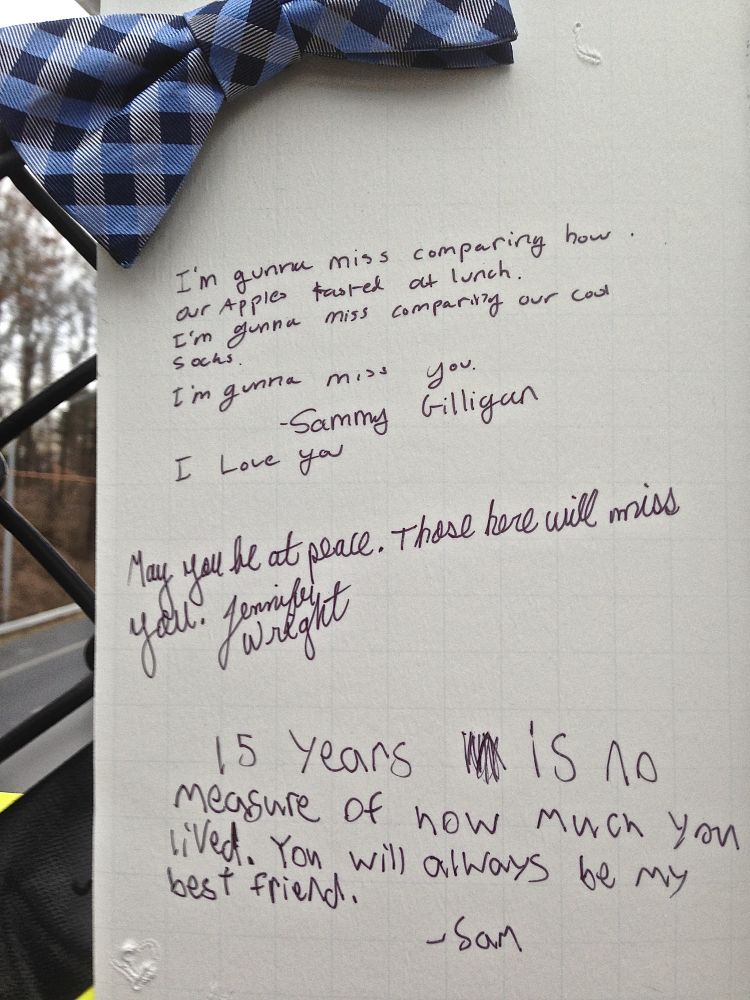 I'm gunna miss comparing how
our Apples tasted at lunch.
I'm gunna miss comparing our cool
socks.
I'm gunna miss you.
-Sammy Gilligan
I Love you
May you be at peace. Those here will miss
you. Jennifer
Wright
15 years is no
measure of how much you
lived. You will always be my
best friend.
-Sam